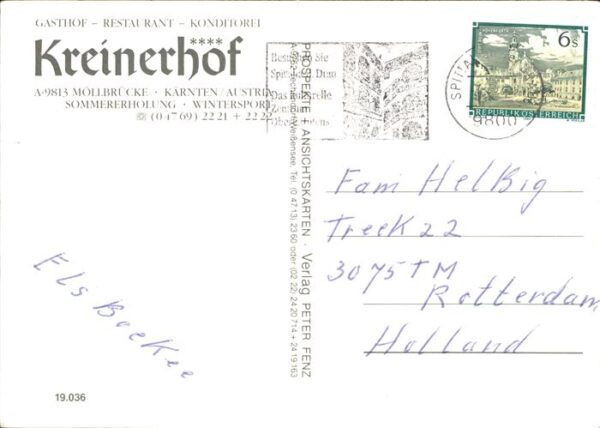 GASTHOF – RESTAURANT – KONDITOREI
****
Kreinerhof
A-9813 MÖLLBRÜCKE · KÄRNTEN/AUSTRIA
SOMMERERHOLUNG · WINTERSPORT
☏ (0 47 69) 22 21 + 22 22
Besuchen Sie
Spittal Drau
Das kulturelle
Zentrum
Oberkärntens
SPITTAL
9800
6 S
REPUBLIK ÖSTERREICH
PROSPEKTE + ANSICHTSKARTEN · Verlag PETER FENZ
Weißensee, Tel. (0 47 13) 23 60 oder (02 22) 24 20 714 + 24 19 163
Fam Helbig
Treek 22
3075 TM
Rotterdam
Holland
Els Boekee
19.036